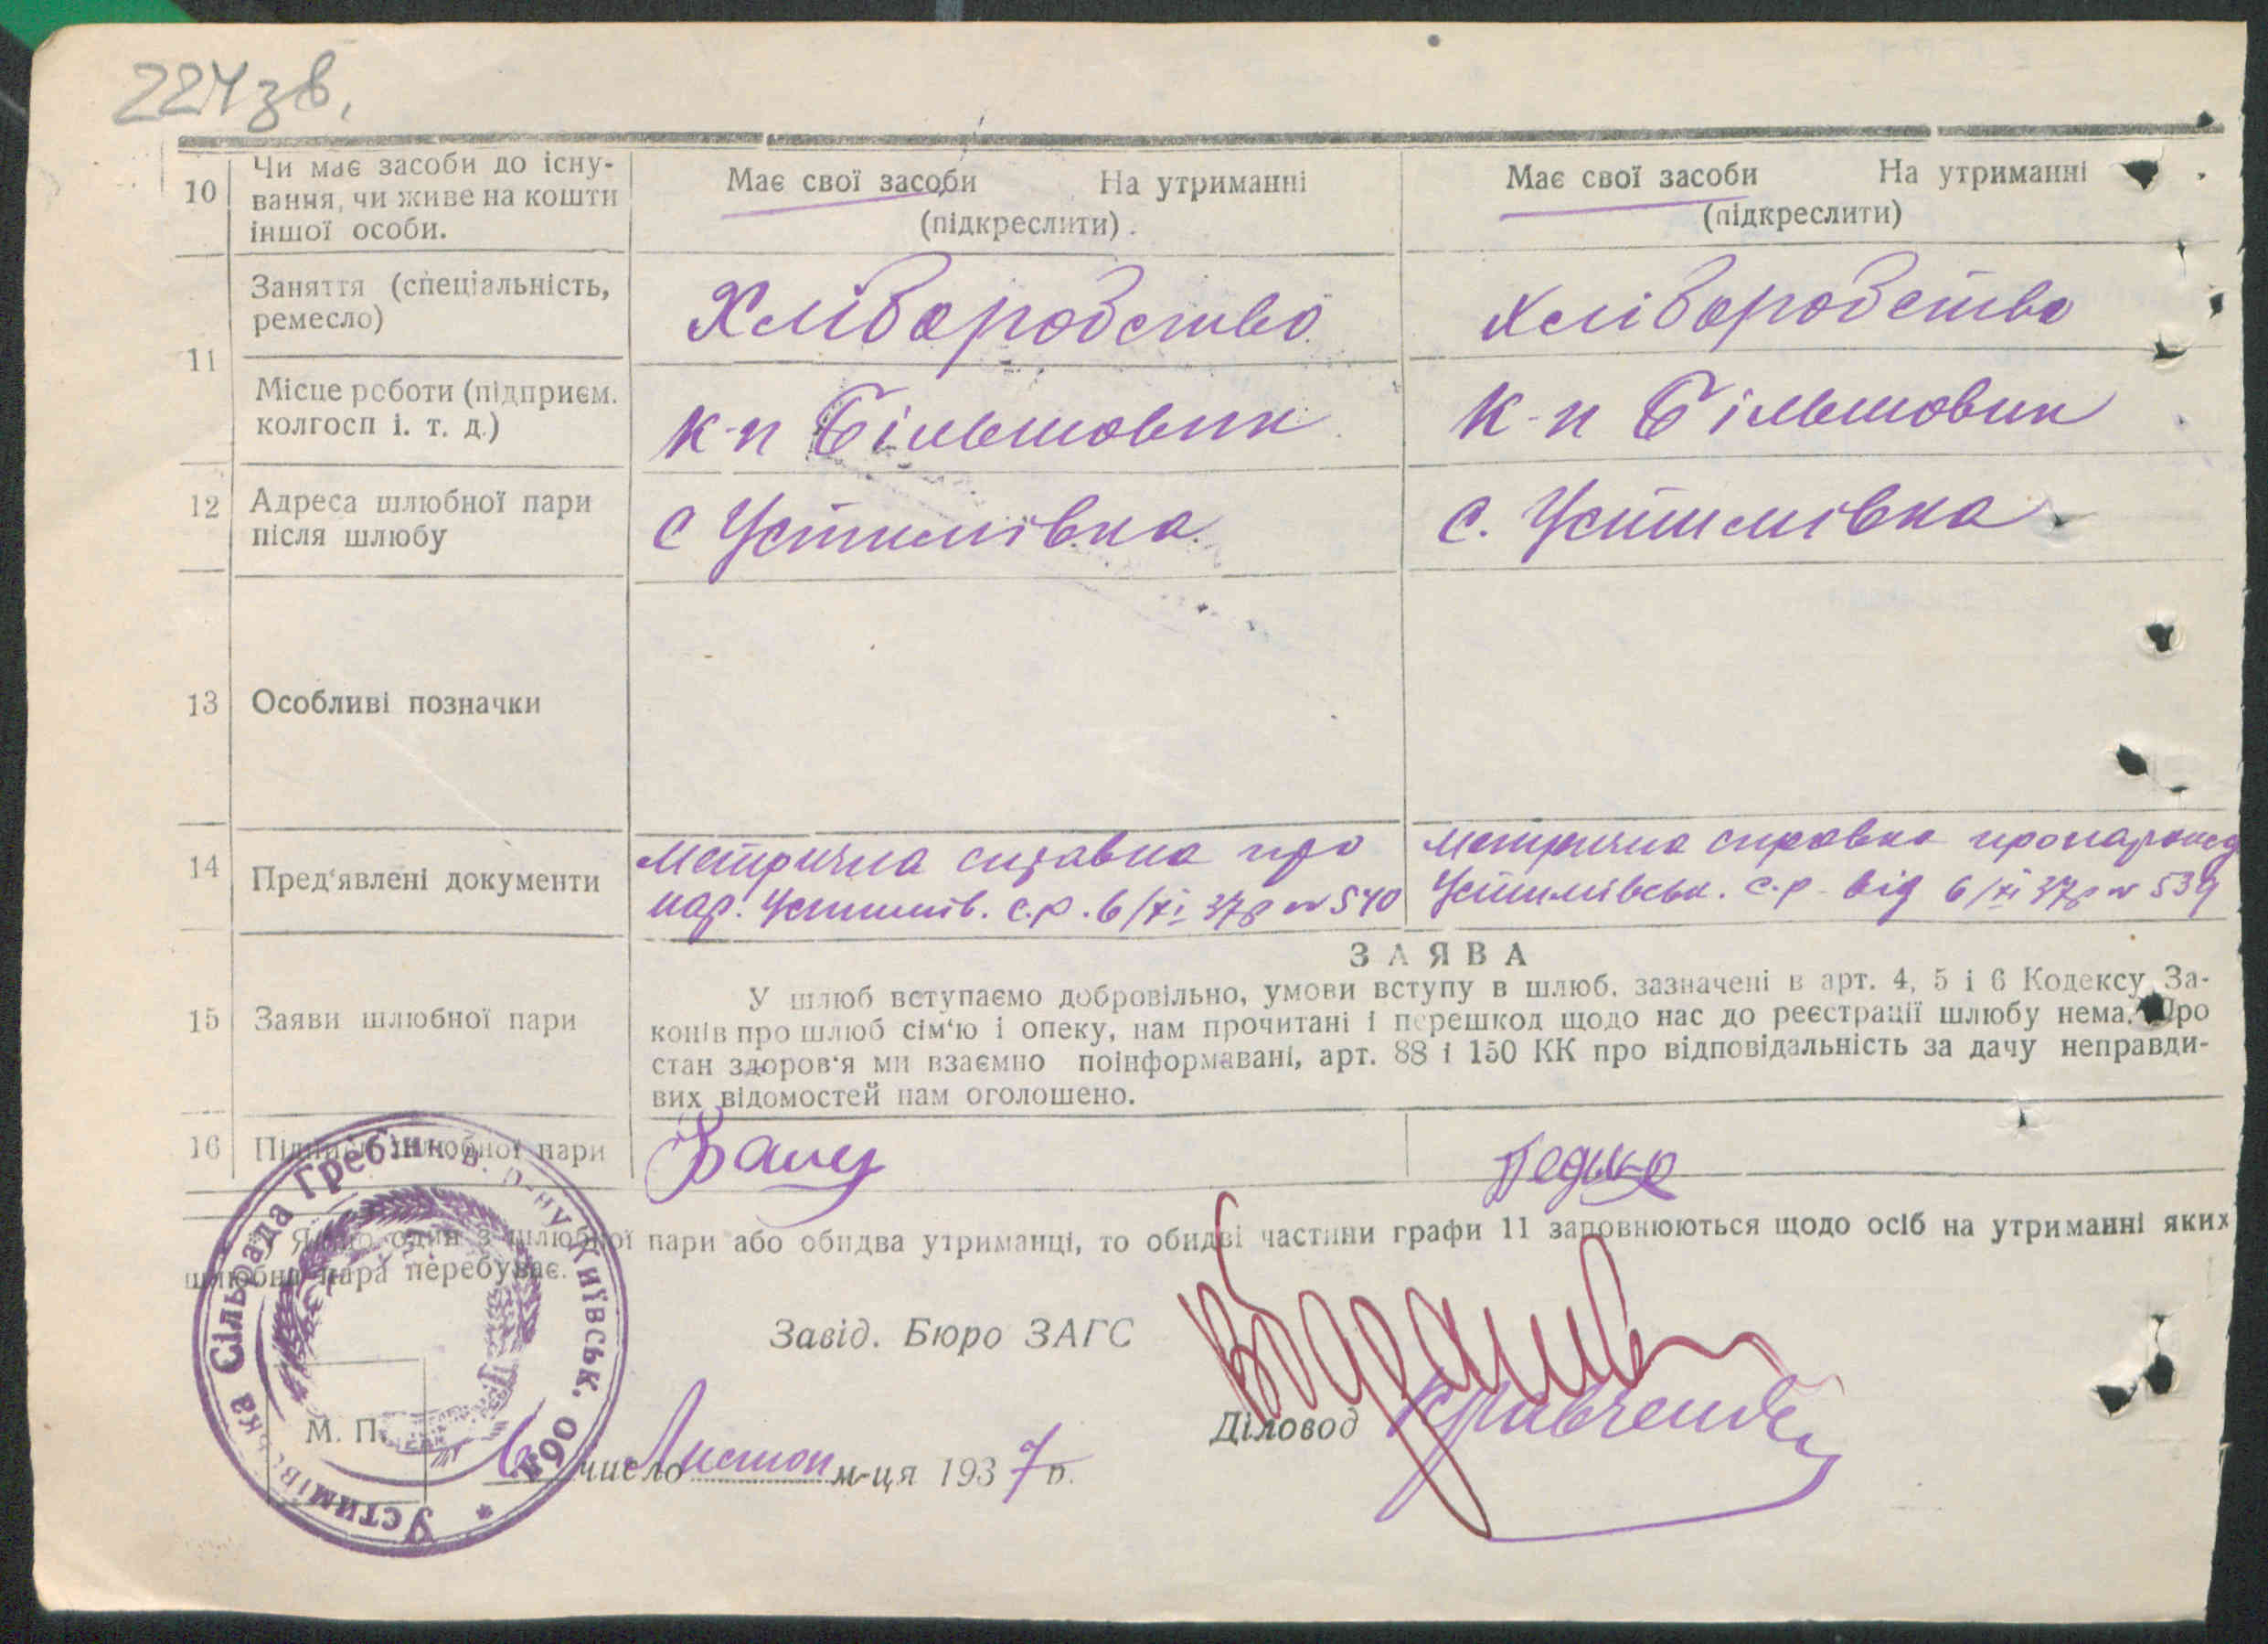 224 зв.
10 Чи має засоби до існу-
вання, чи живе на кошти
іншої особи.
Має свої засоби На утриманні
(підкреслити).
Має свої засоби На утриманні
(підкреслити)
11
Заняття (спеціальність,
ремесло)
Хліборобство
Хліборобство
Місце роботи (підприєм.
колгосп і. т. д.)
к-п Більшовик
к-п Більшовик
12 Адреса шлюбної пари
після шлюбу
с Устимівка
с. Устимівка
13 Особливі позначки
14 Пред'явлені документи
Метрична справка про
нар. Устимів. с.р. 6/XI 37р № 540
Метрична справка про народ
Устимівськ. с.р. від 6/XI 37р № 539
15 Заяви шлюбної пари
ЗАЯВА
У шлюб вступаємо добровільно, умови вступу в шлюб. зазначені в арт. 4, 5 і 6 Кодексу За-
конів про шлюб сім'ю і опеку, нам прочитані і перешкод щодо нас до реєстрації шлюбу нема. Про
стан здоров'я ми взаємно поінформавані, арт. 88 і 150 КК про відповідальність за дачу неправди-
вих відомостей нам оголошено.
16 Підписи шлюбної пари
Якщо один з шлюбної пари або обидва утриманці, то обидві частини графи 11 заповнюються щодо осіб на утриманні яких
шлюбна пара перебуває.
Завід. Бюро ЗАГС
Діловод Кравченко
М. П.
6 число Листоп м-ця 1937 р.
Устимівська Сільрада Гребінк в. р-ну Київськ. Обл. *